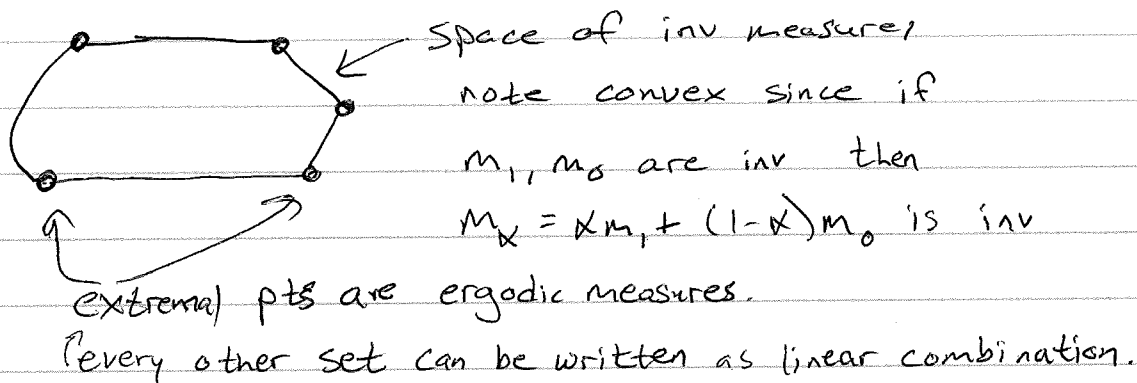 space of inv measures
note convex since if
m₁, m₀ are inv then
m_α = αm₁ + (1-α)m₀ is inv
extremal pts are ergodic measures.
↑every other set can be written as linear combination.